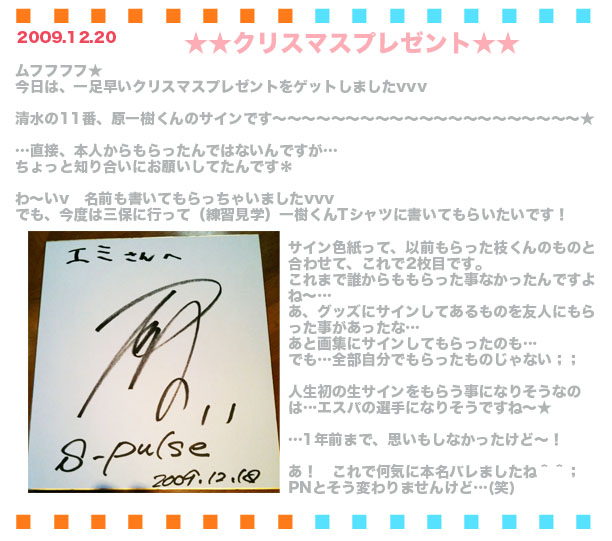 2009.12.20
★★クリスマスプレゼント★★
ムフフフフ★
今日は、一足早いクリスマスプレゼントをゲットしましたvvv
清水の11番、原一樹くんのサインです～～～～～～～～～～～～～～～～～～～～～★
…直接、本人からもらったんではないんですが…
ちょっと知り合いにお願いしてたんです＊
わ～いv　名前も書いてもらっちゃいましたvvv
でも、今度は三保に行って（練習見学）一樹くんTシャツに書いてもらいたいです！
エミさんへ
11
S-pulse
2009.12.18
サイン色紙って、以前もらった枝くんのものと
合わせて、これで2枚目です。
これまで誰からももらった事なかったんですよ
ね～…
あ、グッズにサインしてあるものを友人にもら
った事があったな…
あと画集にサインしてもらったのも…
でも…全部自分でもらったものじゃない；；
人生初の生サインをもらう事になりそうなの
は…エスパの選手になりそうですね～★
…1年前まで、思いもしなかったけど～！
あ！　これで何気に本名バレましたね＾＾；
PNとそう変わりませんけど…(笑)